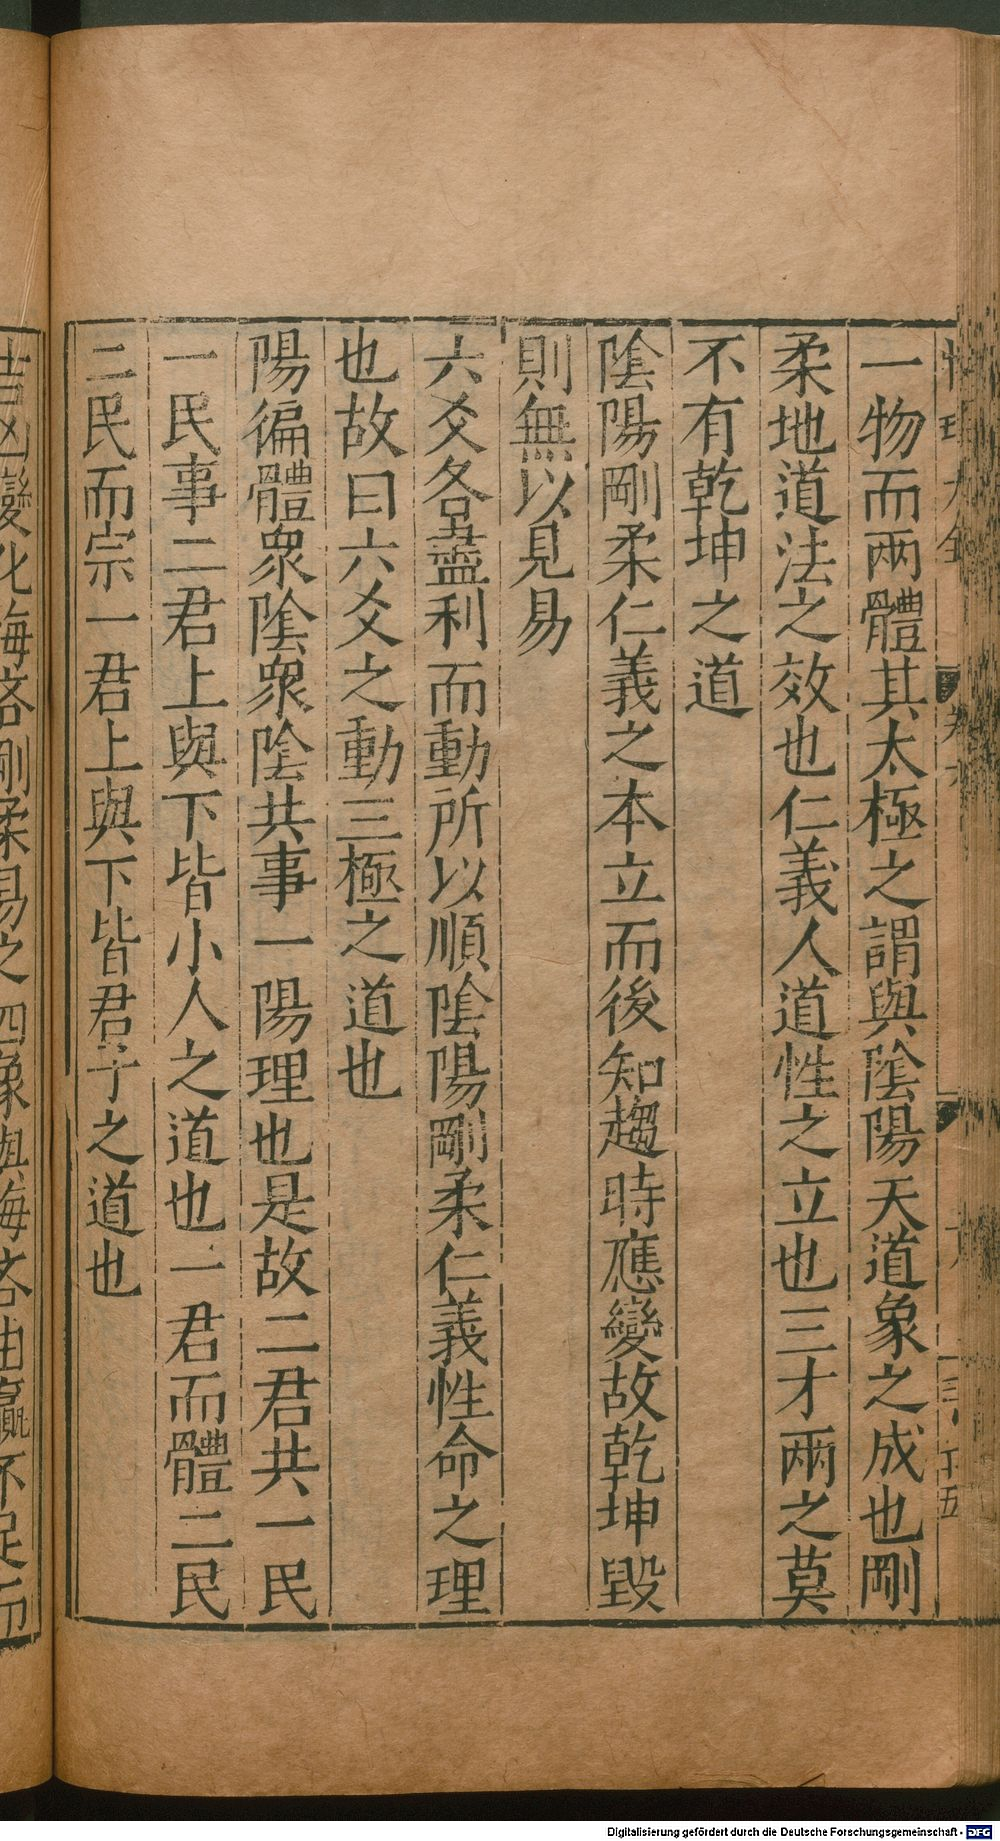 一物而兩體其太極之謂與陰陽天道象之成也剛
柔地道法之效也仁義人道性之立也三才兩之莫
不有乾坤之道
陰陽剛柔仁義之本立而後知趨時應變故乾坤毀
則無以見易
六爻各盡利而動所以順陰陽剛柔仁義性命之理
也故曰六爻之動三極之道也
陽徧體衆陰衆陰共事一陽理也是故二君共一民
一民事二君上與下皆小人之道也一君而體二民
二民而宗一君上與下皆君子之道也
吉凶變化悔吝剛柔易之四象與悔吝由贏不足而
Digitalisierung gefördert durch die Deutsche Forschungsgemeinschaft - DFG